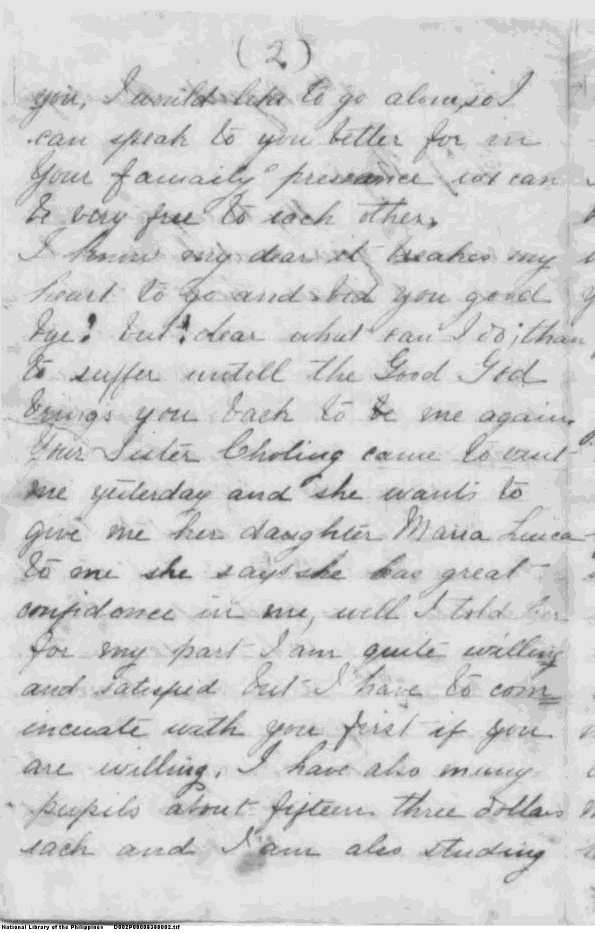 (2)
you, I would like to go alone, so I
can speak to you better for in
Your famaily presance we can
be very free to each other,
I know my dear it breakes my
heart to go and bid you good
bye! but! dear what can I do, than
to suffer untill the Good God
brings you back to be me again.
Your Sister Choling came to visit
me yesterday and she wants to
give me her daughter Maria Luica
to me she says she has great
confidence in me, well I told her
for my part I am quite willing
and satisfied but I have to com=
incuate with you first if you
are willing. I have also many
pupils about fifteen three dollars
each and I am also studing
National Library of the Philippines D002P00000300002.tif